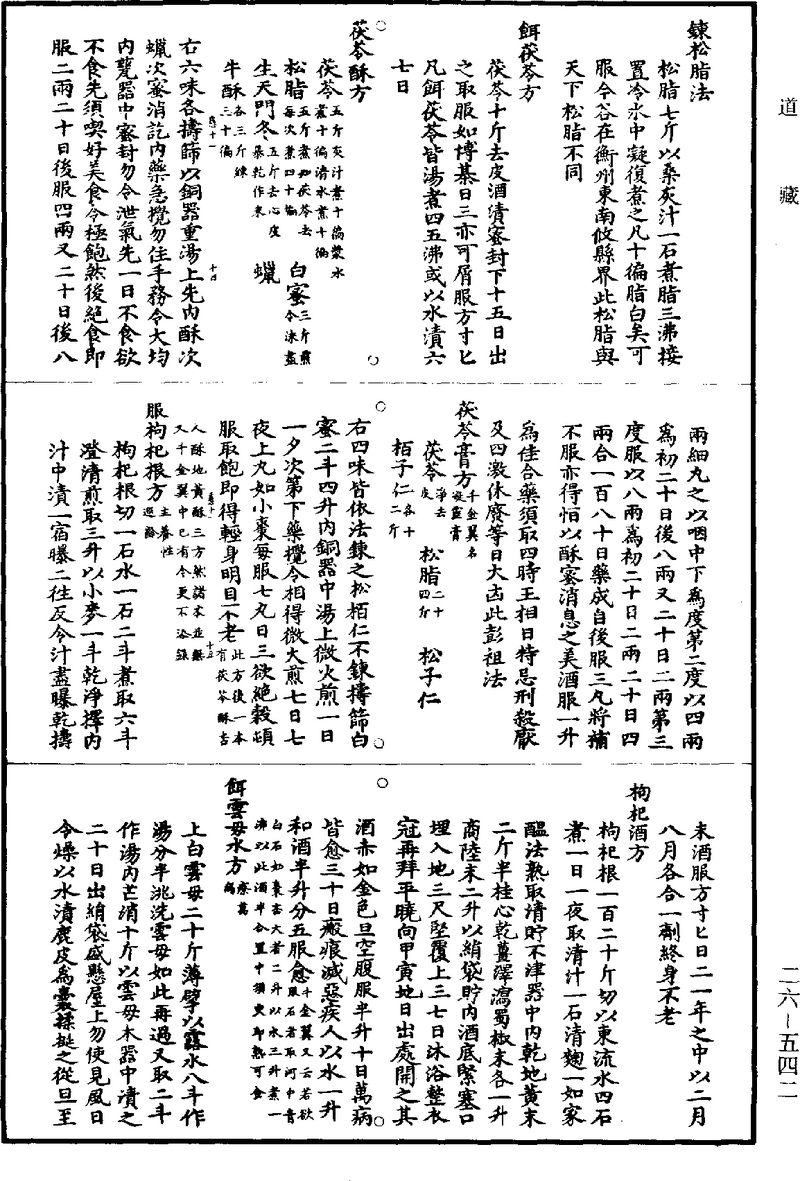 道藏
鍊松脂法
松脂七斤以桑灰汁一石煮脂三沸接
置冷水中凝復煮之凡十徧脂白矣可
服今谷在衡州東南攸縣界此松脂與
天下松脂不同
餌茯苓方
茯苓十斤去皮酒漬密封下十五日出
之取服如博棊日三亦可屑服方寸匕
凡餌茯苓皆湯煮四五沸或以水漬六
七日
茯苓酥方
茯苓五斤灰汁煮十徧漿水煮十徧清水煮十徧
松脂五斤煮如茯苓去每次煮四十徧 白蜜三斤煎令沫盡
生天門冬五斤去心皮暴乾作末 蠟
牛酥各三斤鍊三十徧
右六味各擣篩以銅器重湯上先內酥次
蠟次蜜消訖內藥急攪勿住手務令大均
內甆器中密封勿令泄氣先一日不食欲
不食先須喫好美食令極飽然後絕食即
服二兩二十日後服四兩又二十日後八
兩細丸之以咽中下為度第二度以四兩
為初二十日後八兩又二十日二兩第三
度服以八兩為初二十日二兩二十日四
兩合一百八十日藥成自後服三丸將補
不服亦得恒以酥蜜消息之美酒服一升
為佳合藥須取四時王相日特忌刑殺厭
及四激休廢等日大凶此彭祖法
茯苓膏方千金翼名凝靈膏
茯苓淨去皮 松脂二十四斤 松子仁
栢子仁各十二斤
右四味皆依法鍊之松栢仁不鍊擣篩白
蜜二斗四升內銅器中湯上微火煎一日
一夕次第下藥攪令相得微火煎七日七
夜上丸如小棗每服七丸日三欲絕穀頓
服取飽即得輕身明目不老此方後一本有茯苓酥杏
人酥地黃酥三方然諸本並無又千金翼中已有今更不添錄
服枸杞根方主養性遐齡
枸杞根切一石水一石二斗煮取六斗
澄清煎取三升以小麥一斗乾淨擇內
汁中漬一宿曝二往反令汁盡曝乾擣
末酒服方寸匕日二一年之中以二月
八月各合一劑終身不老
枸杞酒方
枸杞根一百二十斤切以東流水四石
煮一日一夜取清汁一石清麴一如家
醞法熟取清貯不津器中內乾地黃末
二斤半桂心乾薑澤瀉蜀椒末各一升
商陸末二升以絹袋貯內酒底緊塞口
埋入地三尺堅覆上三七日沐浴整衣
冠再拜平曉向甲寅地日出處開之其
酒赤如金色旦空腹服半升十日萬病
皆愈三十日瘢痕滅惡疾人以水一升
和酒半升分五服愈千金翼又云若欲服石者取河中青
白石如棗杏大者二升以水三升煮一沸以此酒半合置中須臾即熟可食
餌雲母水方療萬病
上白雲母二十斤薄擘以露水八斗作
湯分半洮洗雲母如此再過又取二斗
作湯內芒消十斤以雲母木器中漬之
二十日出絹袋盛懸屋上勿使見風日
令燥以水漬鹿皮為囊揉挻之從旦至
二六–五四二